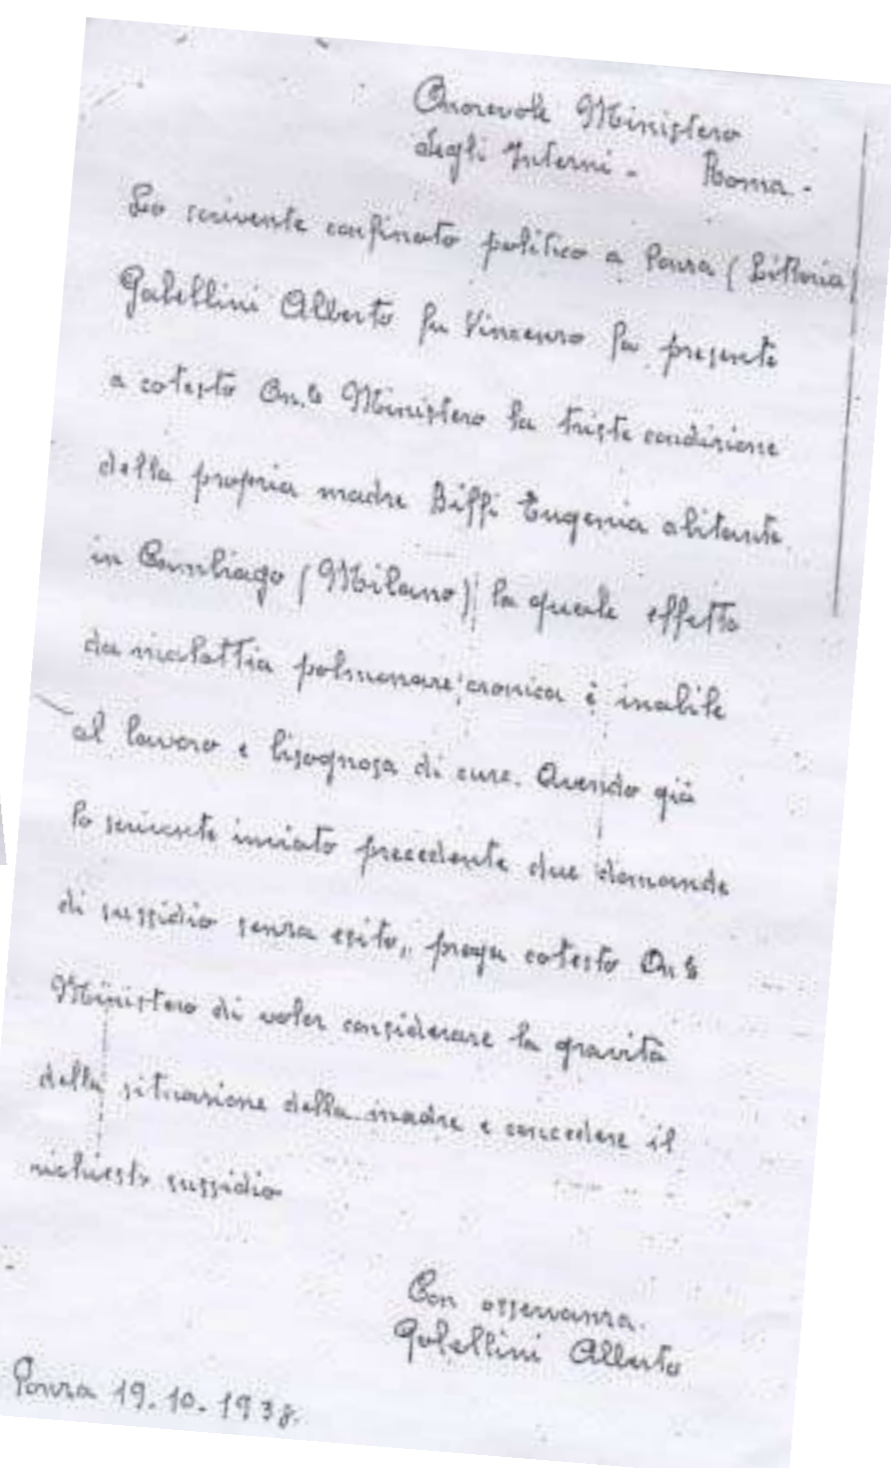 Onorevole Ministero
degli Interni - Roma -
Lo scrivente confinato politico a Ponza (Littoria)
Gabellini Alberto fu Vincenzo fa presente
a cotesto On.le Ministero la triste condizione
della propria madre Biffi Eugenia abitante
in (Milano) la quale effetto
da malattia polmonare cronica è inabile
al lavoro e bisognosa di cure. Avendo già
lo scrivente inviato precedente due domande
di sussidio senza esito,, prega cotesto On le
Ministero di voler considerare la gravità
della situazione della madre e concedere il
richiesto sussidio
Con osservanza.
Gabellini Alberto
Ponza 19.10.1938.